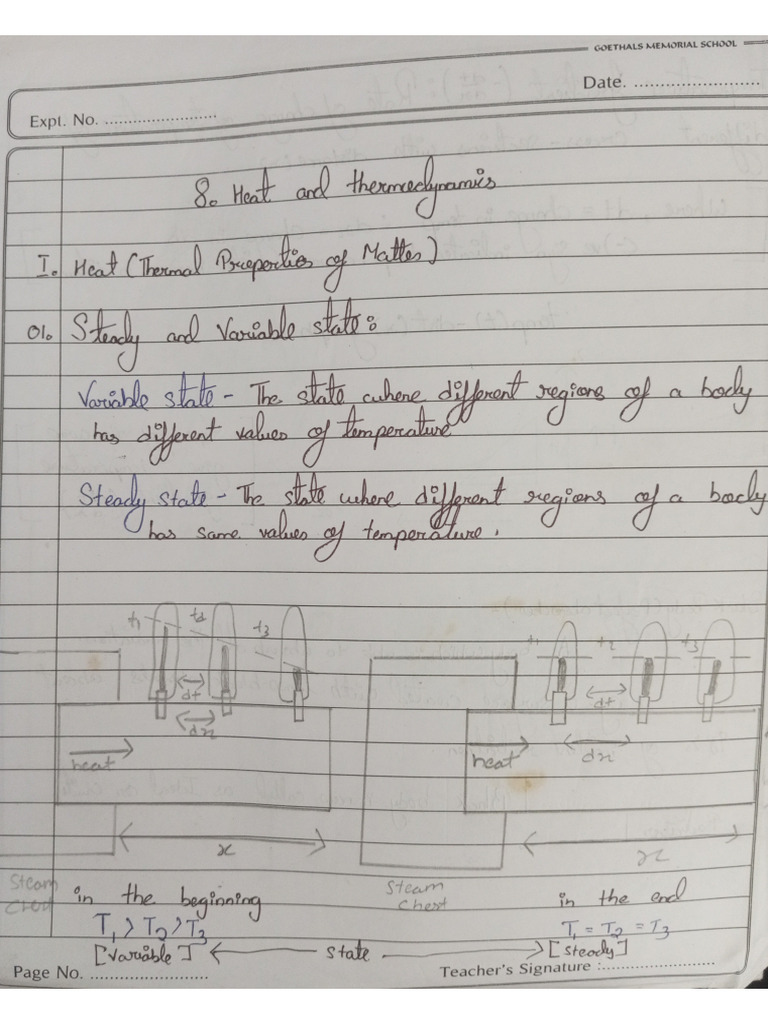 GOETHALS MEMORIAL SCHOOL
Date. ........................
Expt. No. ........................
8. Heat and thermodynamics
I. Heat (Thermal Properties of Matter)
01. Steady and Variable state:
Variable state - The state where different regions of a body
has different values of temperature
Steady state - The state where different regions of a body
has same values of temperature.
t1 t2 t3 t1 t2 t3
dt dt
dx dx
heat heat
x x
Steam Chest Steam Chest
in the beginning in the end
T1 > T2 > T3 T1 = T2 = T3
[variable] state [steady]
Page No. ........................ Teacher's Signature :........................